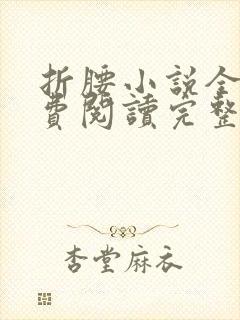 折腰小説全
費閱讀完整
杏堂麻衣